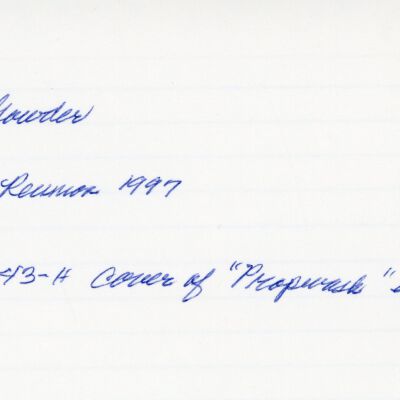 Reunion 1997
43-H Cover of "Propwash"